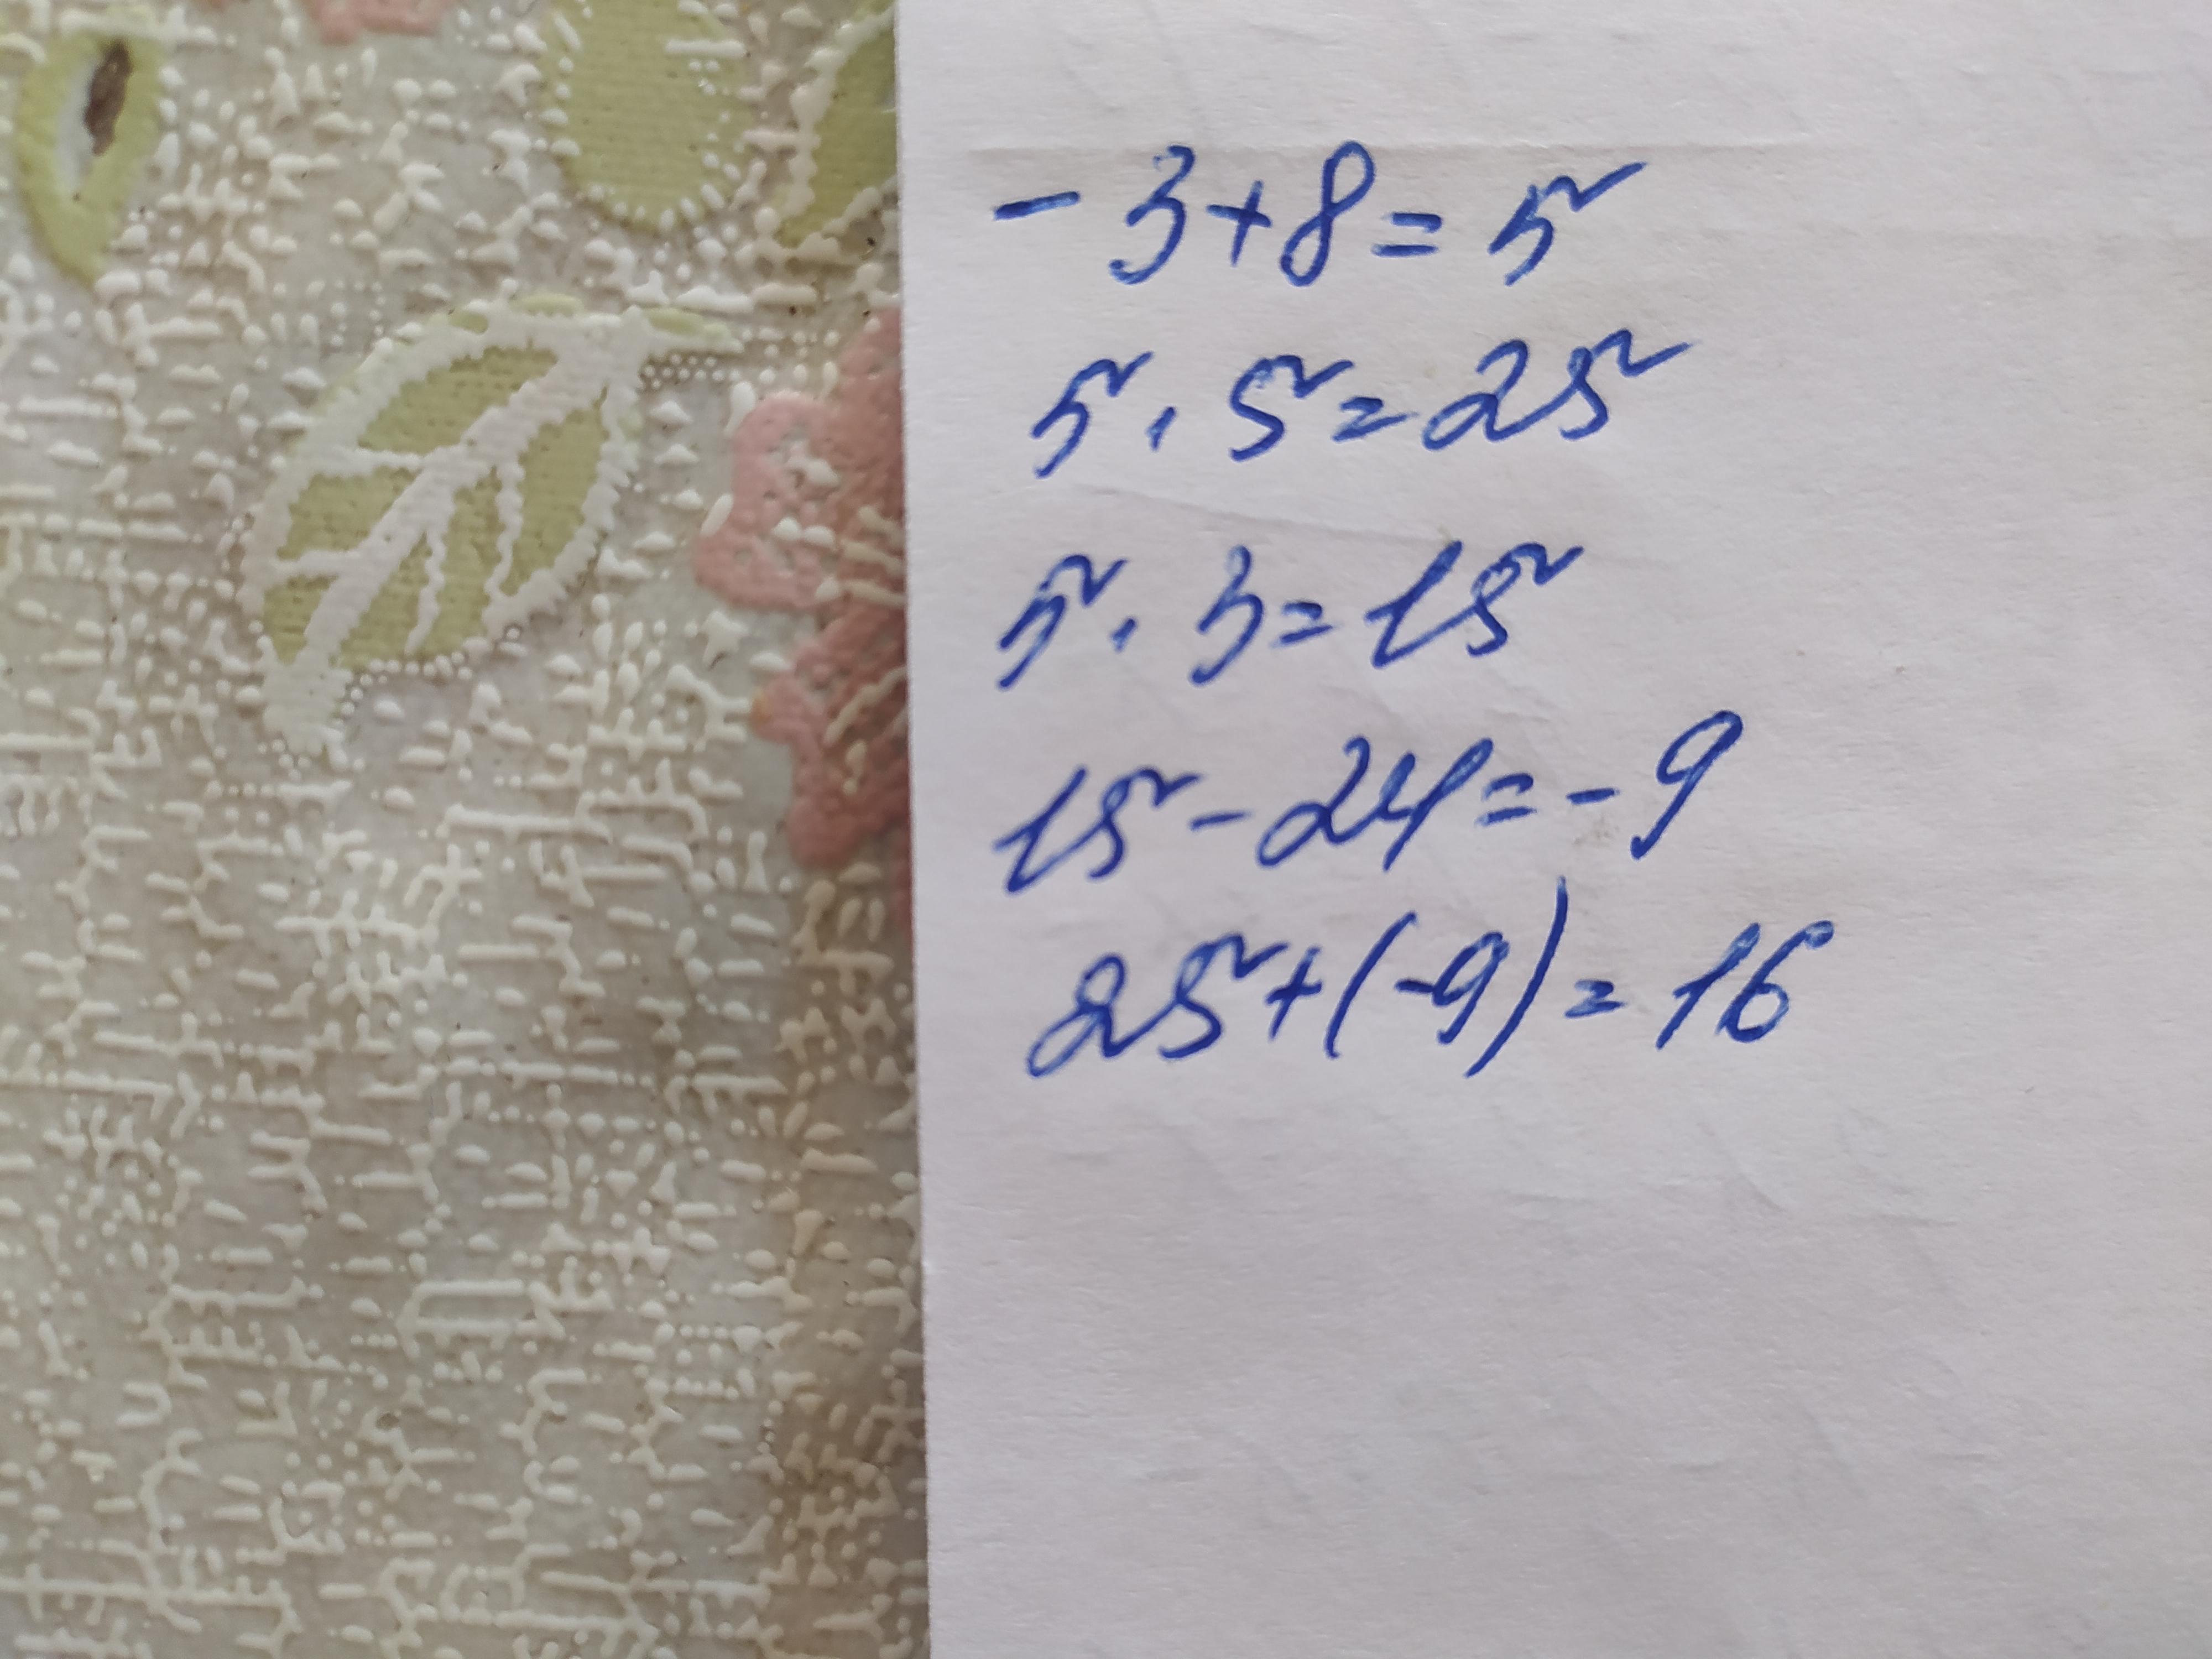 - 3+8=5
5·5=25
5·3=15
15-24=-9
25+(-9)=16